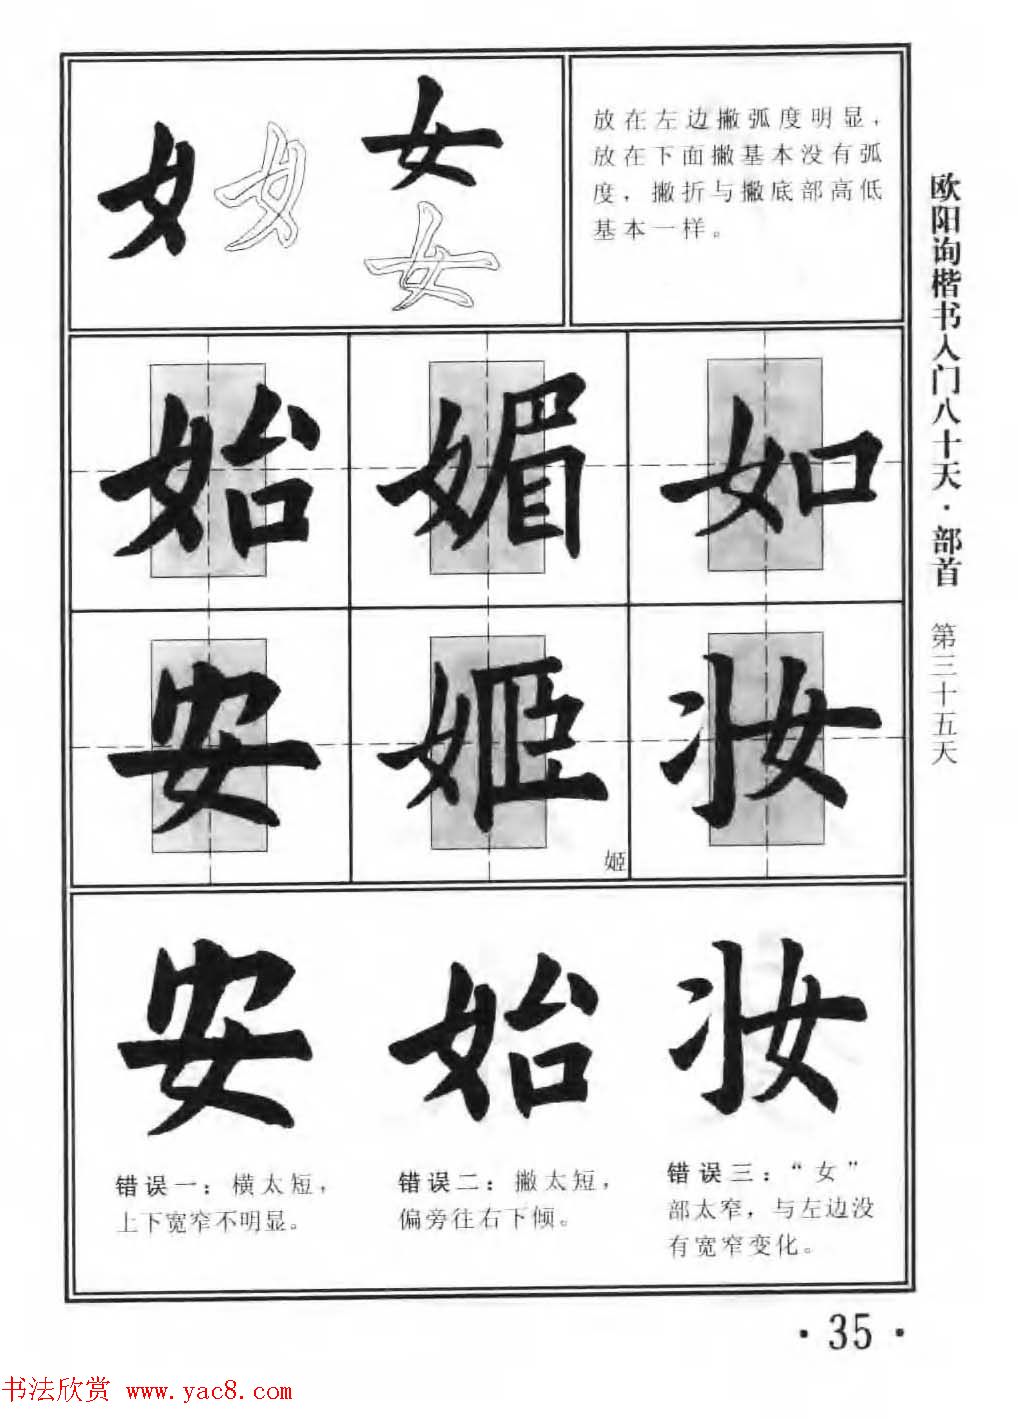 女 女
女
女
放在左边撇弧度明显，
放在下面撇基本没有弧
度，撇折与撇底部高低
基本一样。
始 媚 如
安 姬 妆
姬
安 始 妆
错误一：横太短，
上下宽窄不明显。
错误二：撇太短，
偏旁往右下倾。
错误三：“女”
部太窄，与左边没
有宽窄变化。
欧阳询楷书入门八十天·部首 第三十五天
·35·
书法欣赏 www.yac8.com